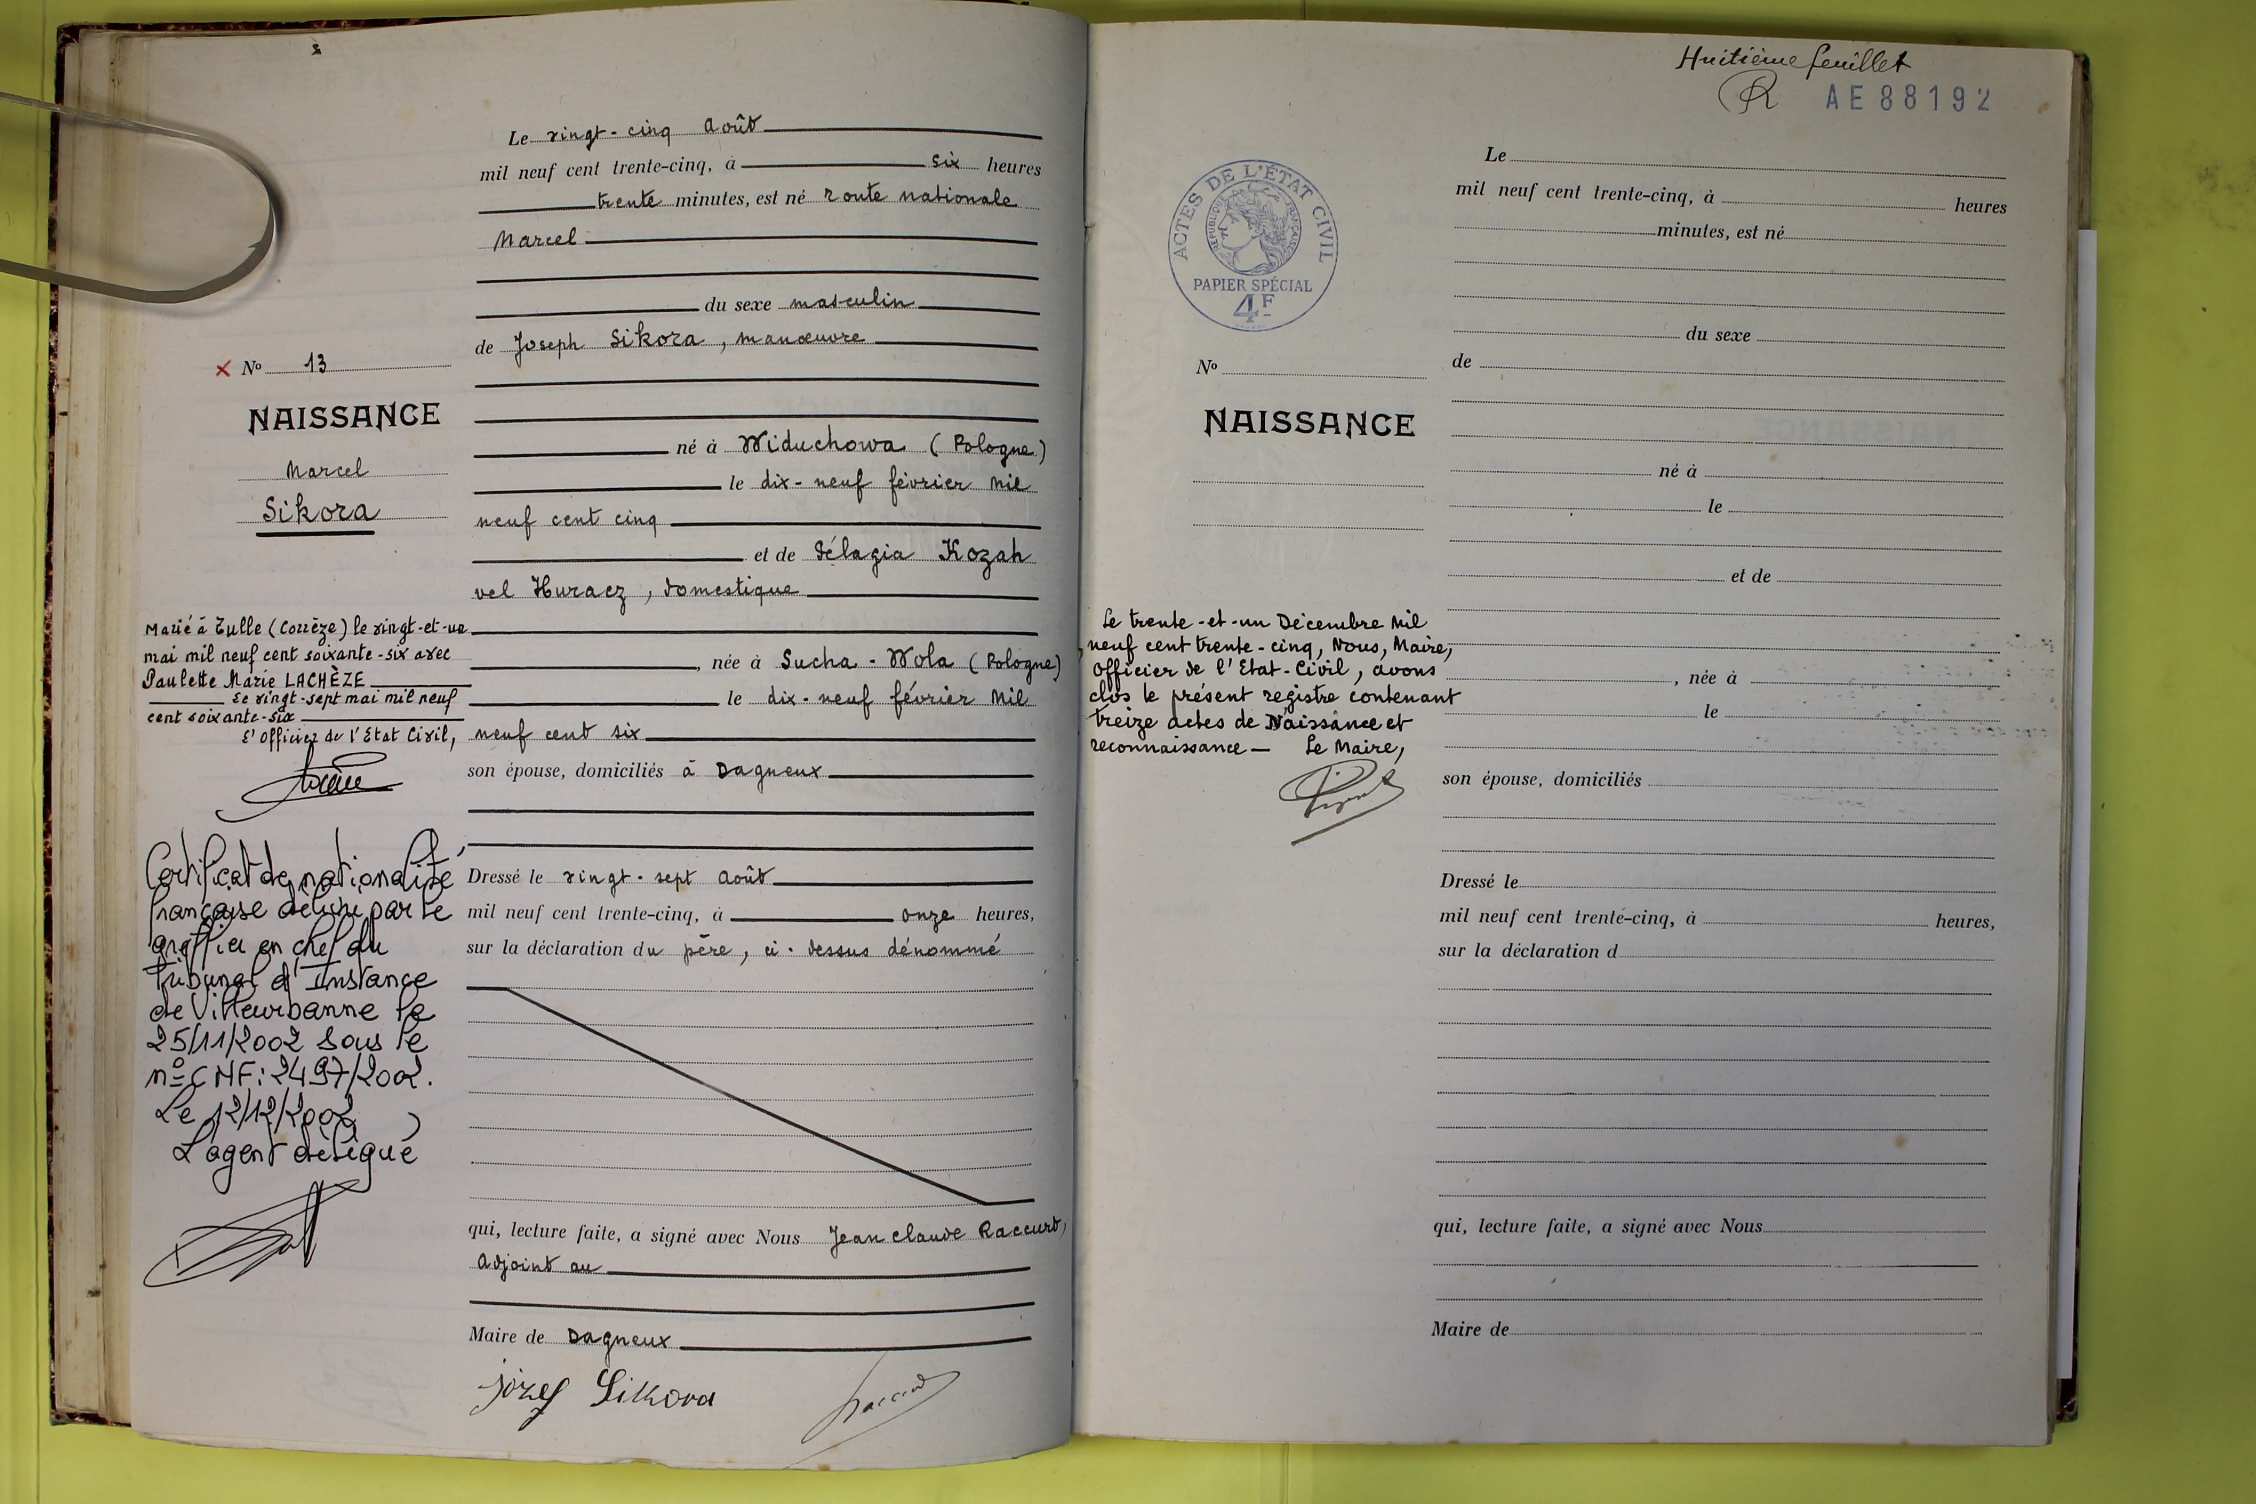 Le vingt-cinq Août
mil neuf cent trente-cinq, à six heures
trente minutes, est né route nationale
Marcel
du sexe masculin
de Joseph Sikora, manœuvre
né à Widuchowa (Pologne)
le dix-neuf février mil
neuf cent cinq
et de Pélagia Kozah
vel Huracz, domestique
née à Sucha-Wola (Pologne)
le dix-neuf février mil
neuf cent six
son épouse, domiciliés à Dagneux
Dressé le vingt-sept Août
mil neuf cent trente-cinq, à onze heures,
sur la déclaration du père, ci-dessus dénommé
qui, lecture faite, a signé avec Nous Jean Claude Raccurt,
Adjoint au
Maire de Dagneux
józef Sikora
× No 13
NAISSANCE
Marcel
Sikora
Marié à Tulle (Corrèze) le vingt-et-un
mai mil neuf cent soixante-six avec
Paulette Marie LACHÈZE
Le vingt-sept mai mil neuf
cent soixante-six
L'Officier de l'Etat Civil,
Certificat de nationalité
française délivré par le
greffier en chef du
Tribunal d'Instance
de Villeurbanne le
25/11/2002 sous le
n° CNF: 2497/2002.
Le 12/12/2002,
L'agent délégué
Huitième feuillet
AE88192
ACTES DE L'ÉTAT CIVIL
RÉPUBLIQUE FRANÇAISE
PAPIER SPÉCIAL
4F
Le
mil neuf cent trente-cinq, à heures
minutes, est né
du sexe
de
No
NAISSANCE
né à
le
et de
, née à
le
son épouse, domiciliés
Le trente-et-un Décembre mil
neuf cent trente-cinq, Nous, Maire,
Officier de l'Etat-Civil, avons
clos le présent registre contenant
treize actes de Naissance et
reconnaissance — Le Maire,
Dressé le
mil neuf cent trente-cinq, à heures,
sur la déclaration d
qui, lecture faite, a signé avec Nous
Maire de